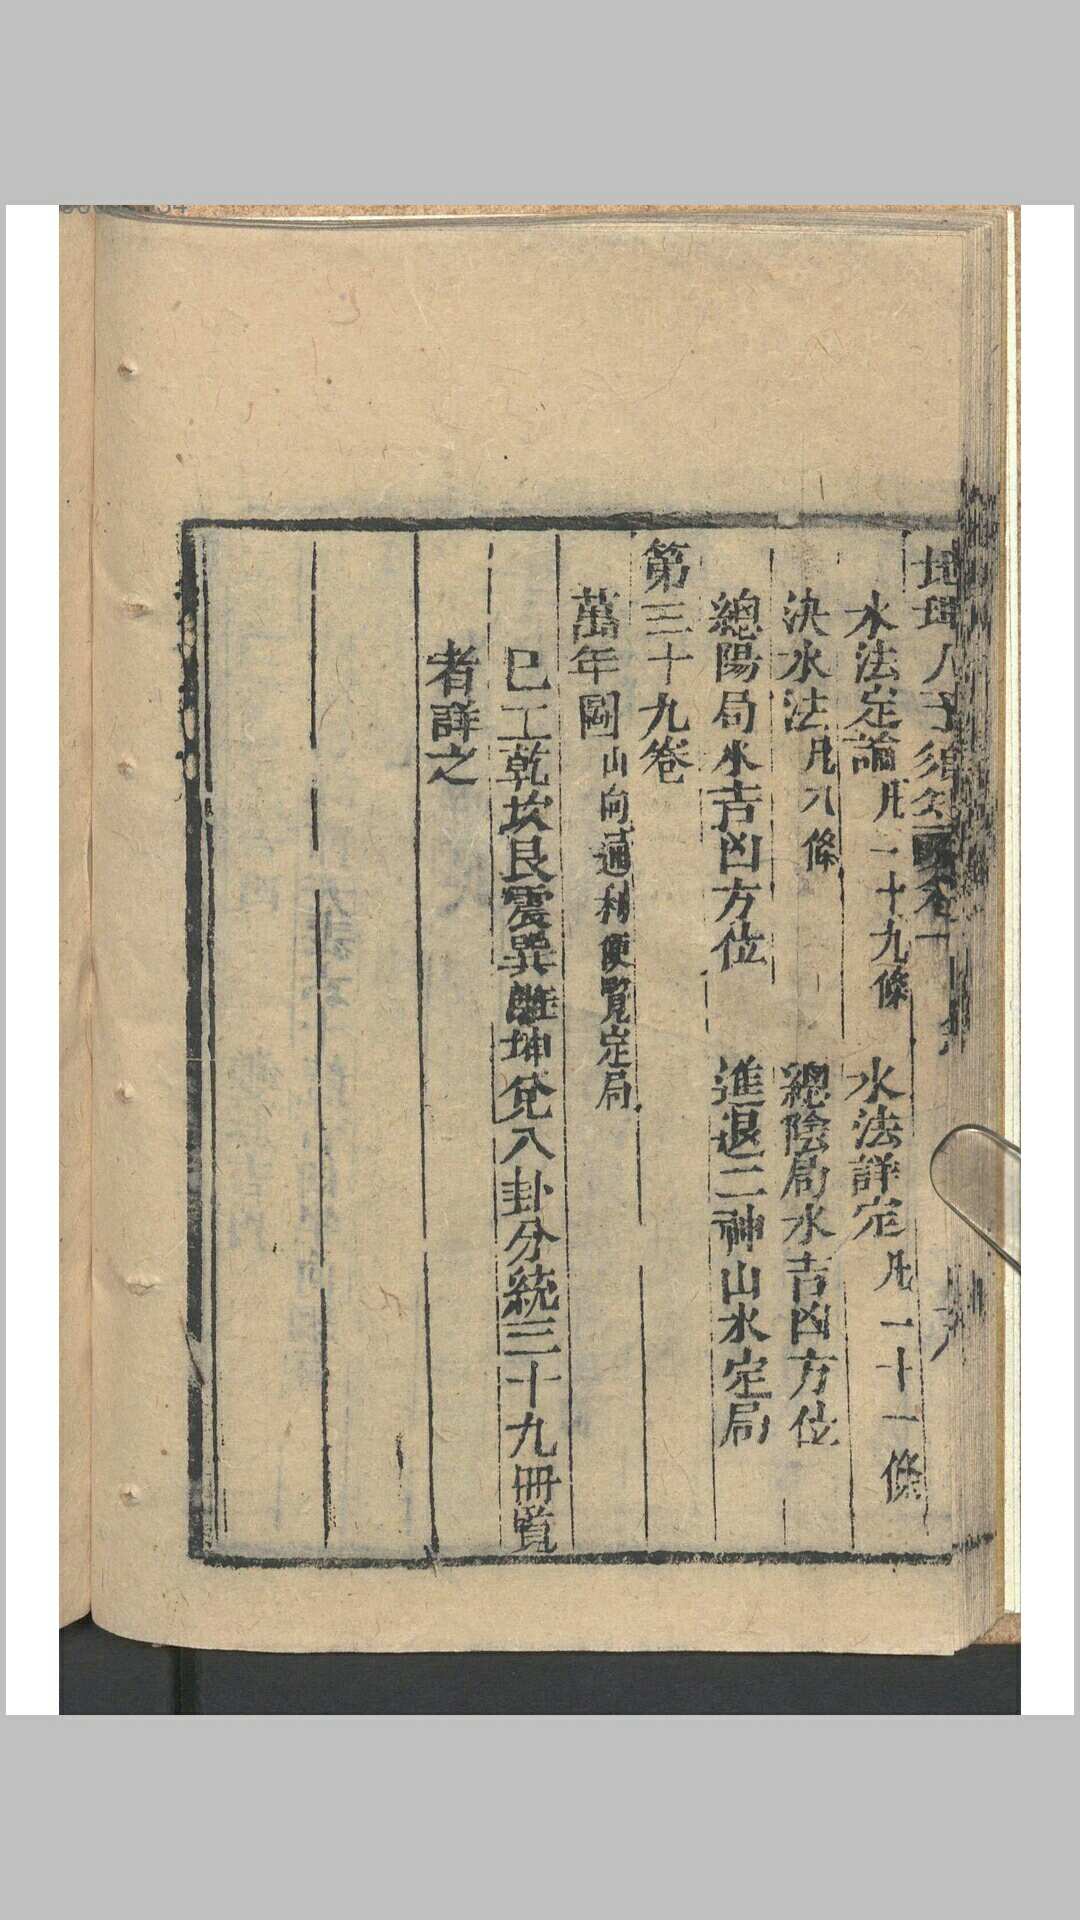 地理人子須知
水法定論凡二十九條　水法詳定凡一十一條
決水法凡八條　總陰局水吉凶方位
總陽局水吉凶方位　進退二神山水定局
第三十九卷
萬年圖山向通利便覽定局
已上乾坎艮震巽離坤兌八卦分統三十九冊覽
者詳之